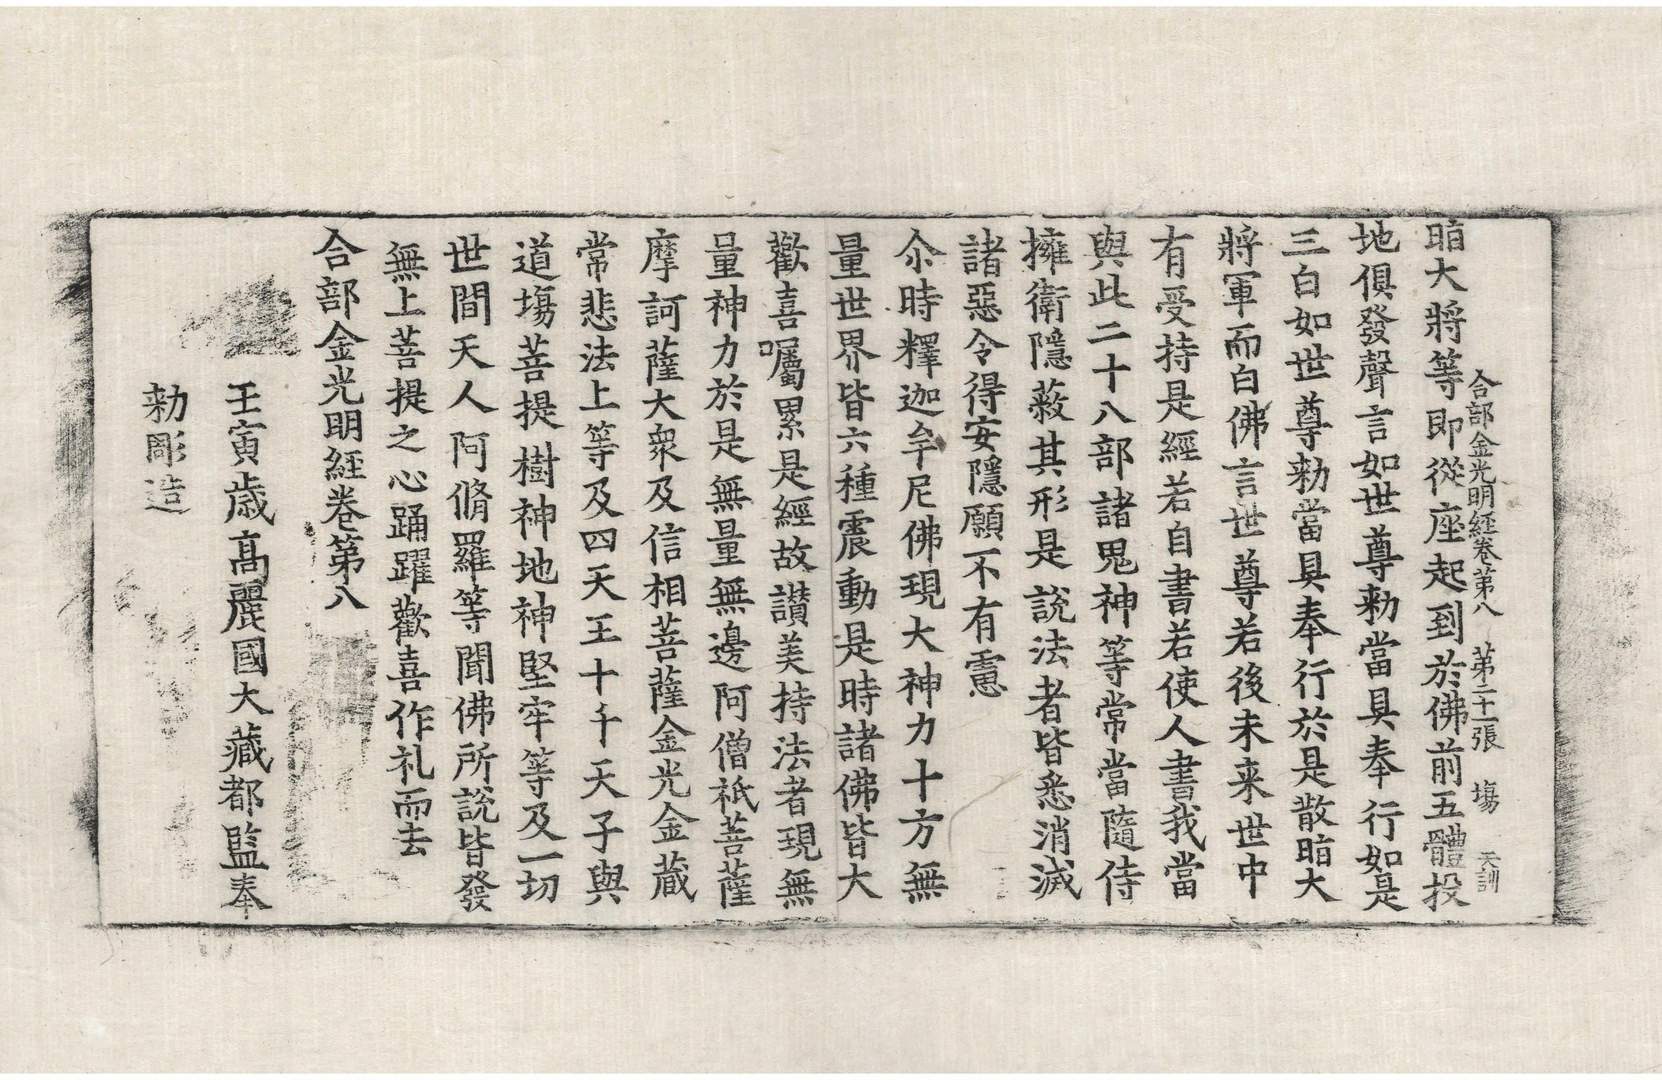 合部金光明経卷第八　第二十一張　塲　天訓
𣆶大將等即從座起到於佛前五體投
地俱發聲言如世尊勑當具奉行如是
三白如世尊勑當具奉行於是散𣆶大
將軍而白佛言世尊若後未来世中
有受持是經若自書若使人書我當
與此二十八部諸鬼神等常當隨侍
擁衛隱蔽其形是說法者皆悉消滅
諸惡令得安隱願不有慮
尒時釋迦牟尼佛現大神力十方無
量世界皆六種震動是時諸佛皆大
歡喜囑累是經故讃美持法者現無
量神力於是無量無邊阿僧祇菩薩
摩訶薩大衆及信相菩薩金光金蔵
常悲法上等及四天王十千天子與
道塲菩提樹神地神堅牢等及一切
世間天人阿脩羅等聞佛所說皆發
無上菩提之心踊躍歡喜作礼而去
合部金光明経卷第八
壬寅歲高麗國大藏都監奉
勑彫造